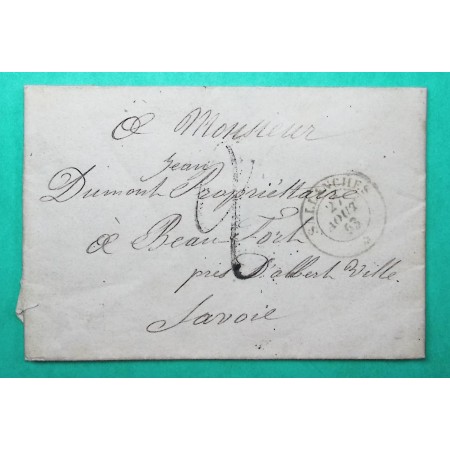 A Monsieur
Jean
Dumont Propriétaire
à Beau Fort
près D'albert Ville
Savoie
SALLANCHES
2
AOUT
53